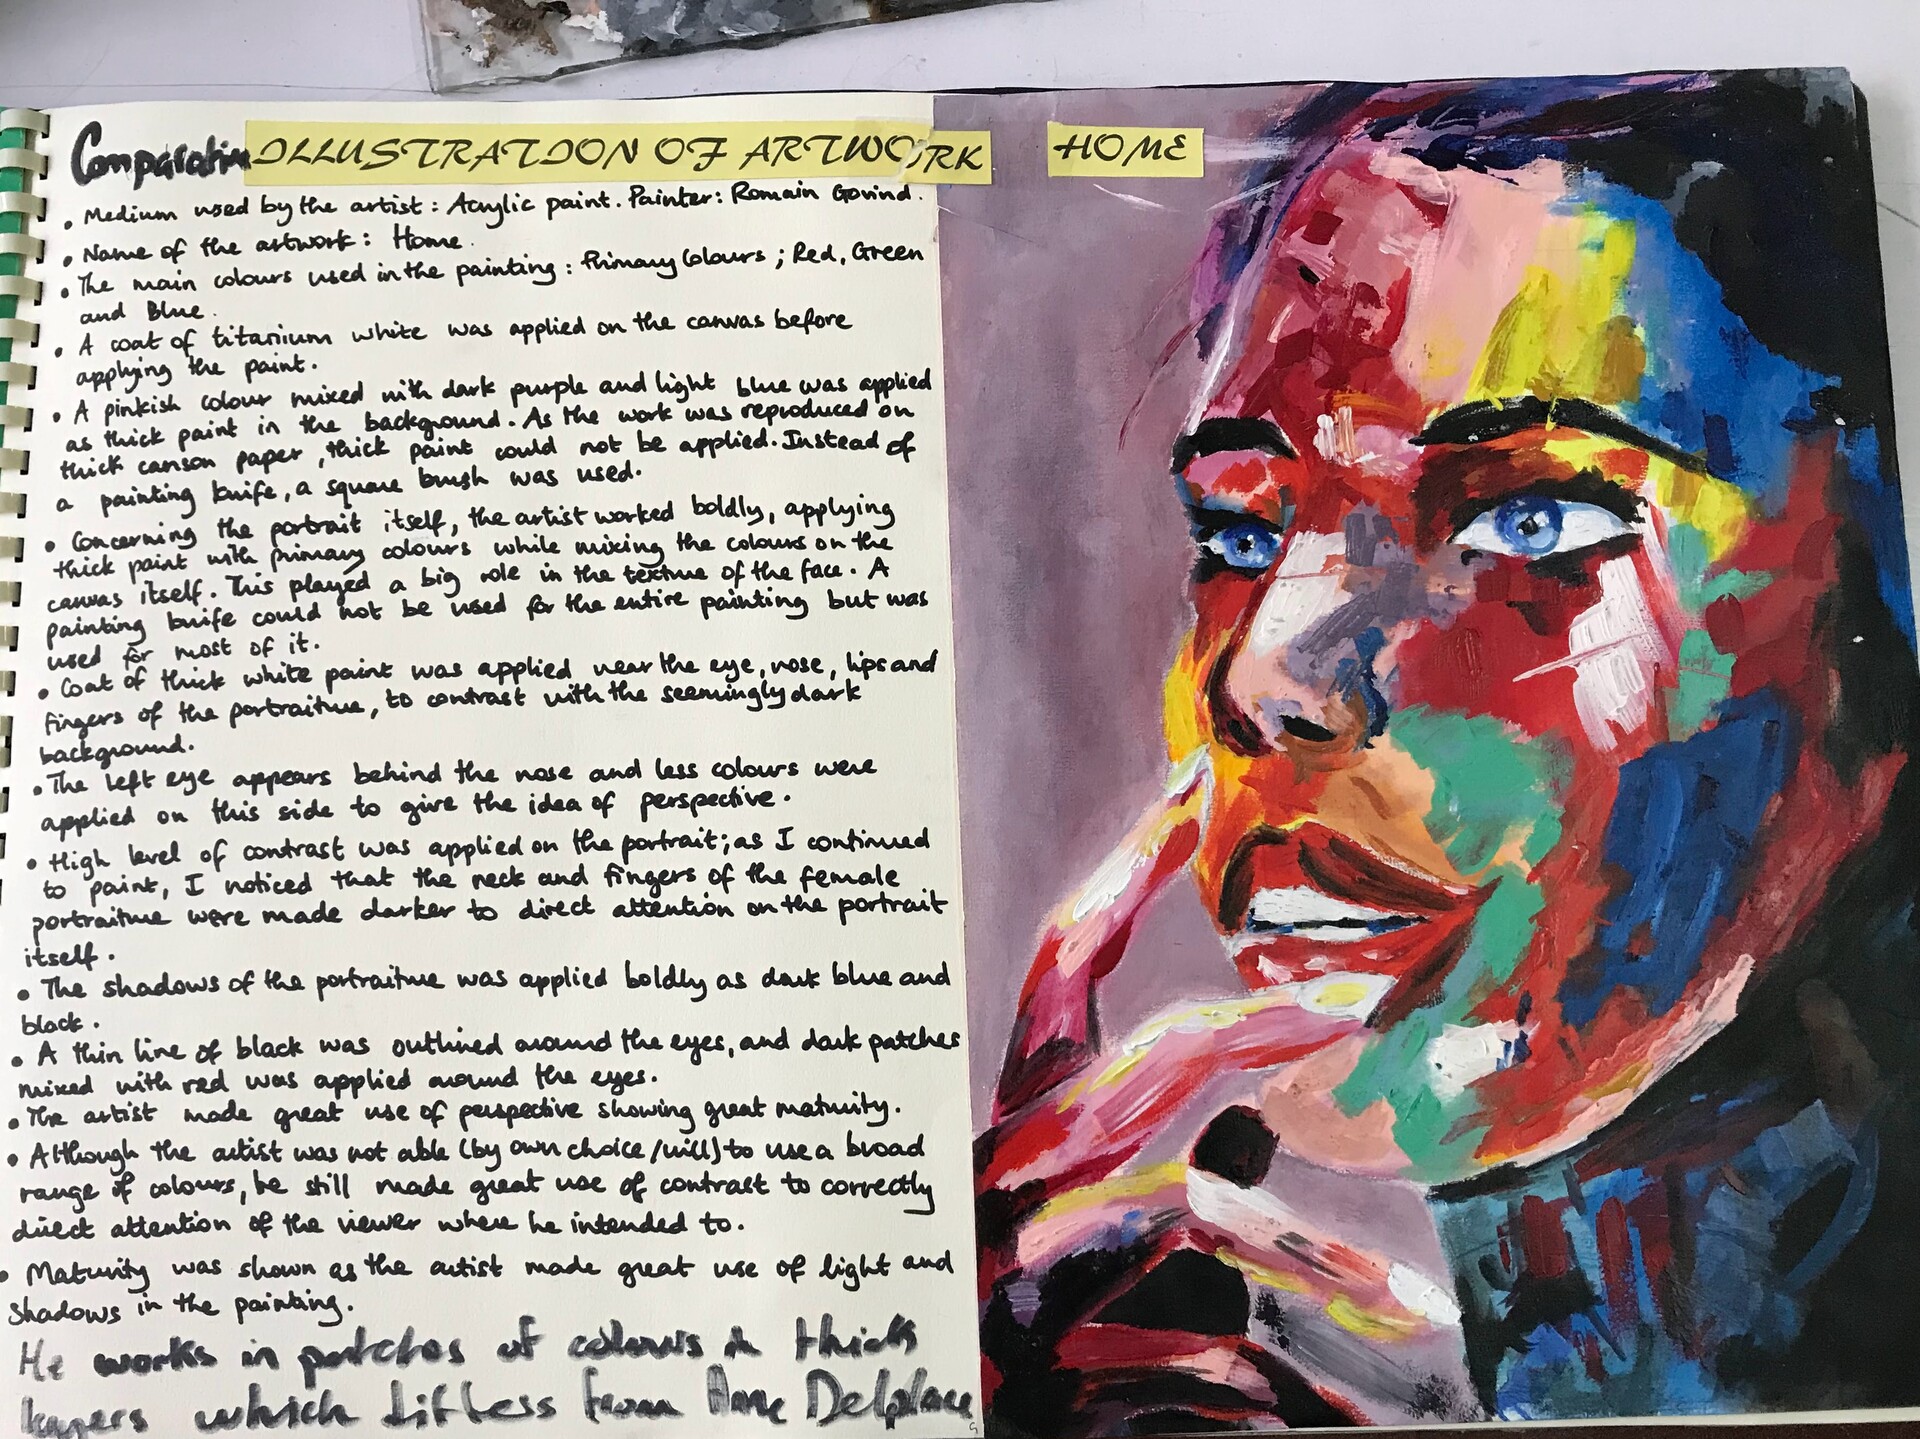 Comparative ILLUSTRATION OF ARTWORK HOME
• Medium used by the artist: Acrylic paint. Painter: Romain Govind.
• Name of the artwork: Home.
• The main colours used in the painting: Primary Colours; Red, Green
and Blue.
• A coat of titanium white was applied on the canvas before
applying the paint.
• A pinkish colour mixed with dark purple and light blue was applied
as thick paint in the background. As the work was reproduced on
thick canson paper, thick paint could not be applied. Instead of
a painting knife, a square brush was used.
• Concerning the portrait itself, the artist worked boldly, applying
thick paint with primary colours while mixing the colours on the
canvas itself. This played a big role in the texture of the face. A
painting knife could not be used for the entire painting but was
used for most of it.
• Coat of thick white paint was applied near the eye, nose, lips and
fingers of the portraiture, to contrast with the seemingly dark
background.
• The left eye appears behind the nose and less colours were
applied on this side to give the idea of perspective.
• High level of contrast was applied on the portrait; as I continued
to paint, I noticed that the neck and fingers of the female
portraiture were made darker to direct attention on the portrait
itself.
• The shadows of the portraiture was applied boldly as dark blue and
black.
• A thin line of black was outlined around the eyes, and dark patches
mixed with red was applied around the eyes.
• The artist made great use of perspective showing great maturity.
• Although the artist was not able (by own choice/will) to use a broad
range of colours, he still made great use of contrast to correctly
direct attention of the viewer where he intended to.
• Maturity was shown as the artist made great use of light and
shadows in the painting.
He works in patches of colours in thick
layers which from Delplace